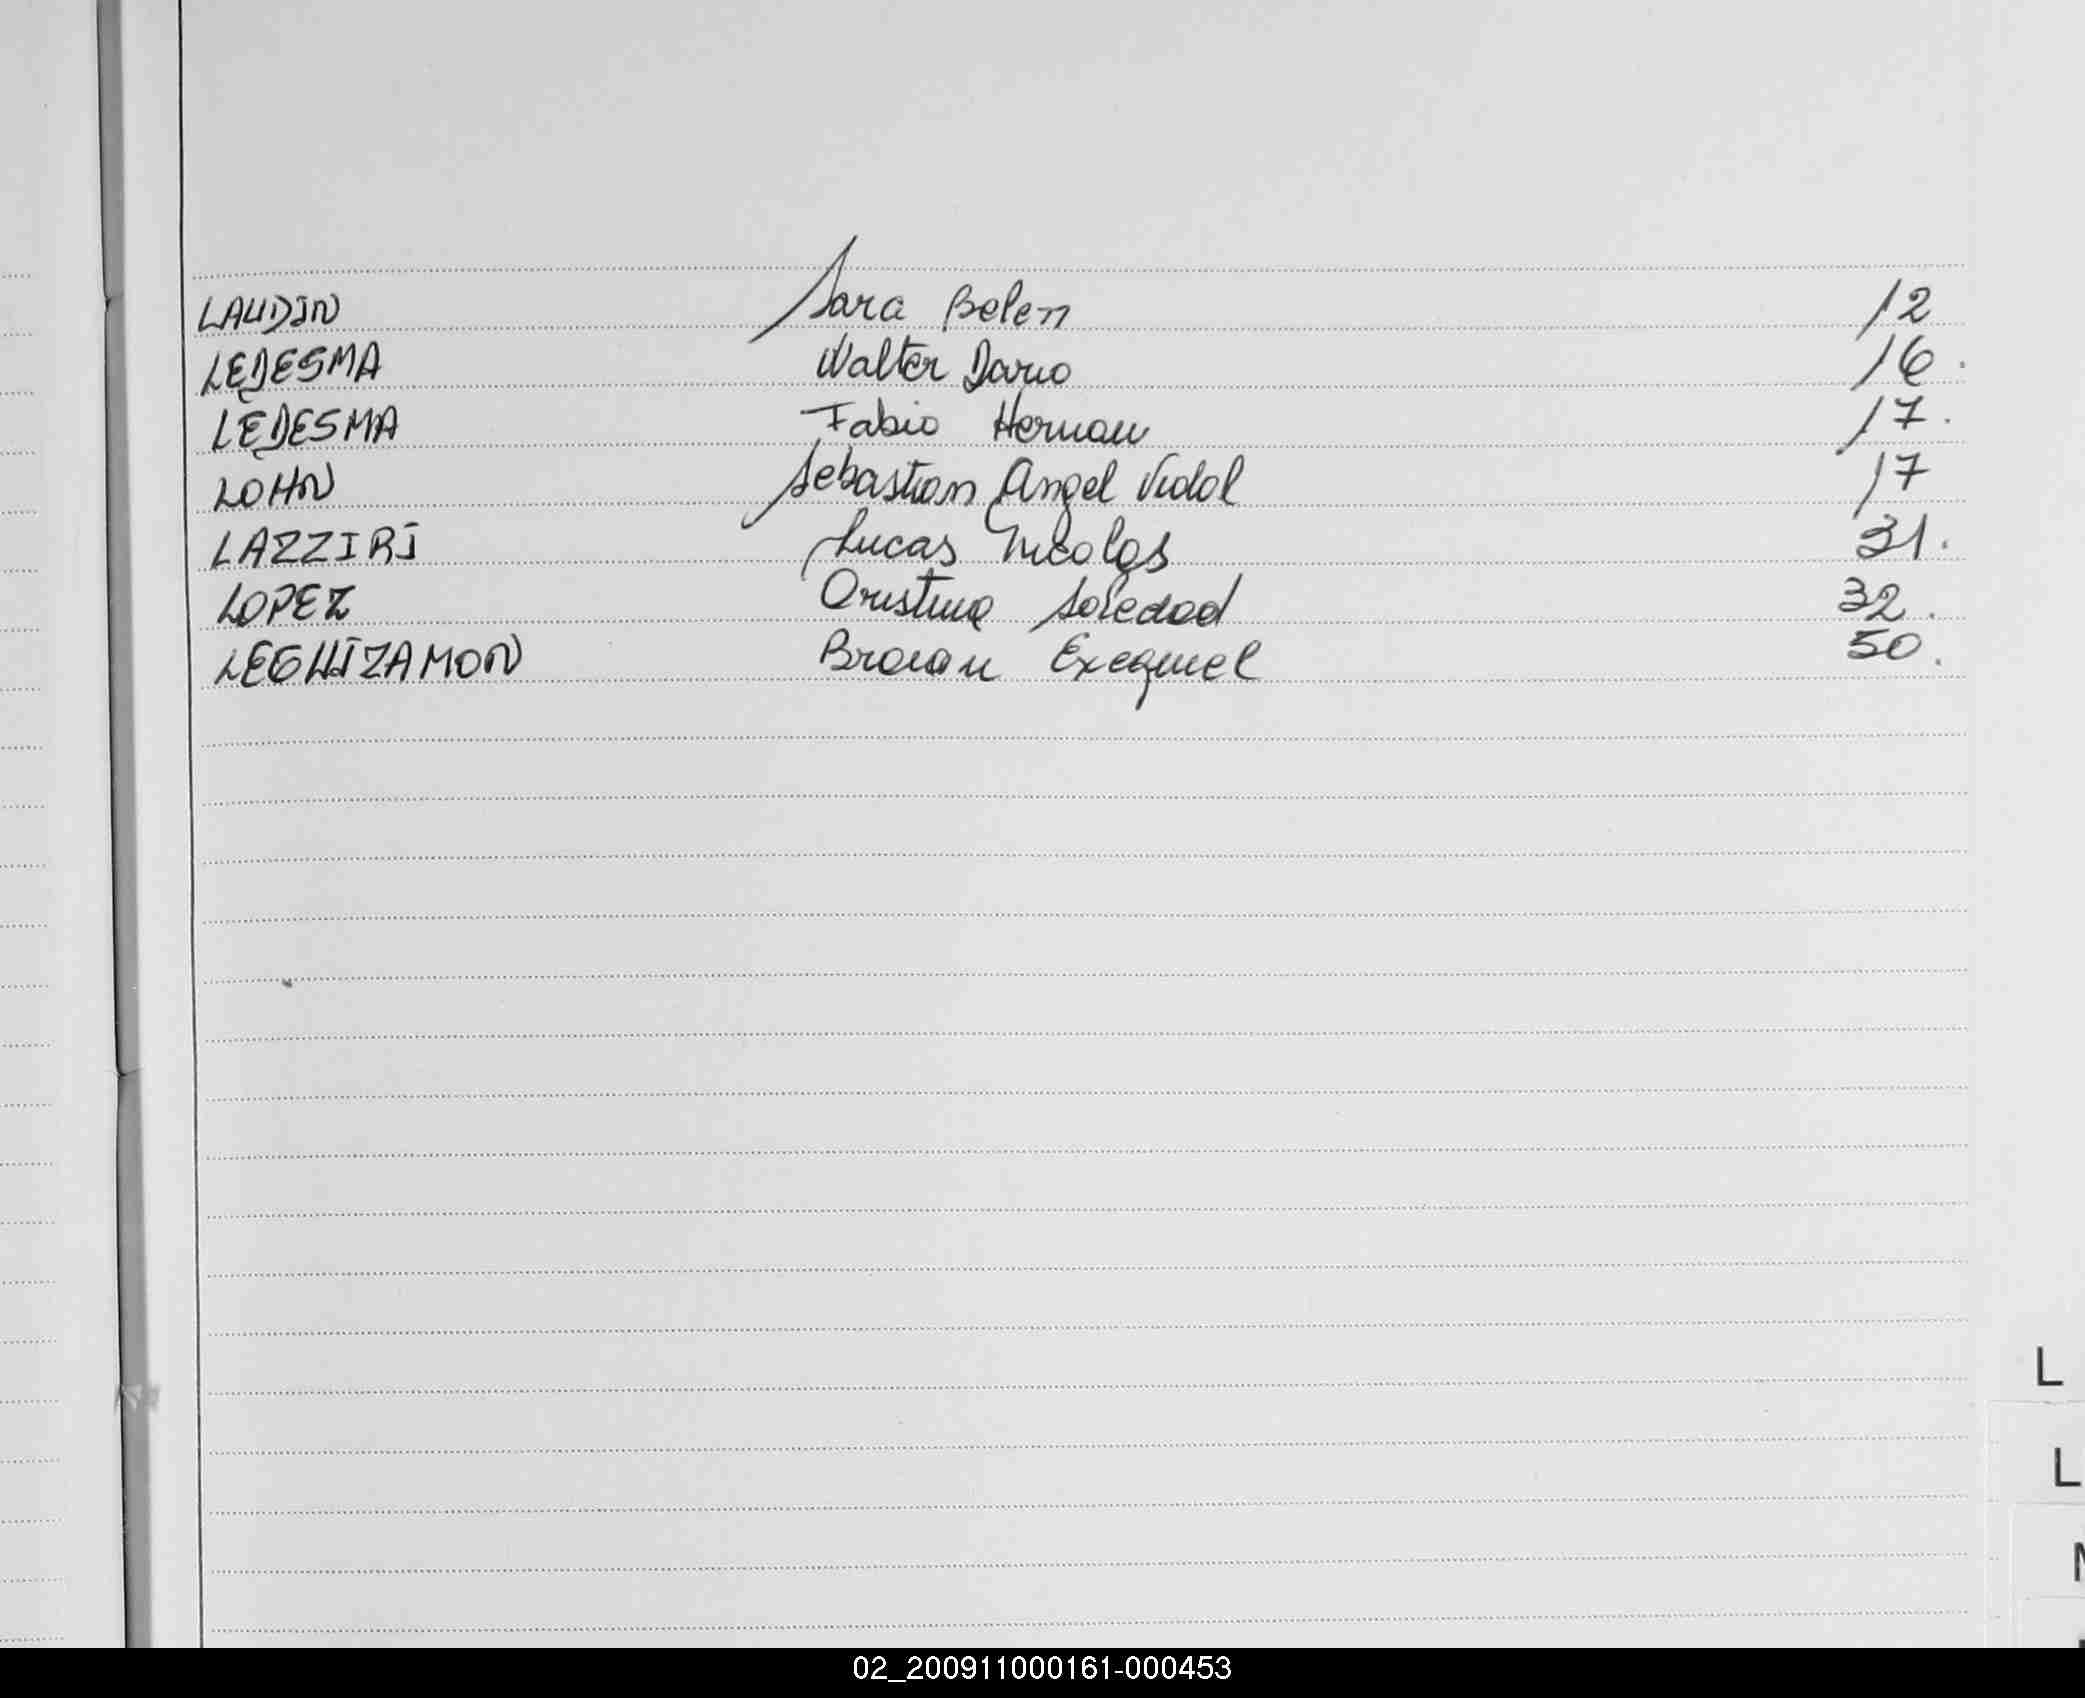 LAUDIN Sara Belen 12
LEDESMA Walter Dario 16.
LEDESMA Fabio Hernan 17.
LOHN Sebastian Angel Vidal 17
LAZZIRI Lucas Nicolas 31.
LOPEZ Cristina Soledad 32.
LEGUIZAMON Braian Exequiel 50.
L
L
02_200911000161-000453